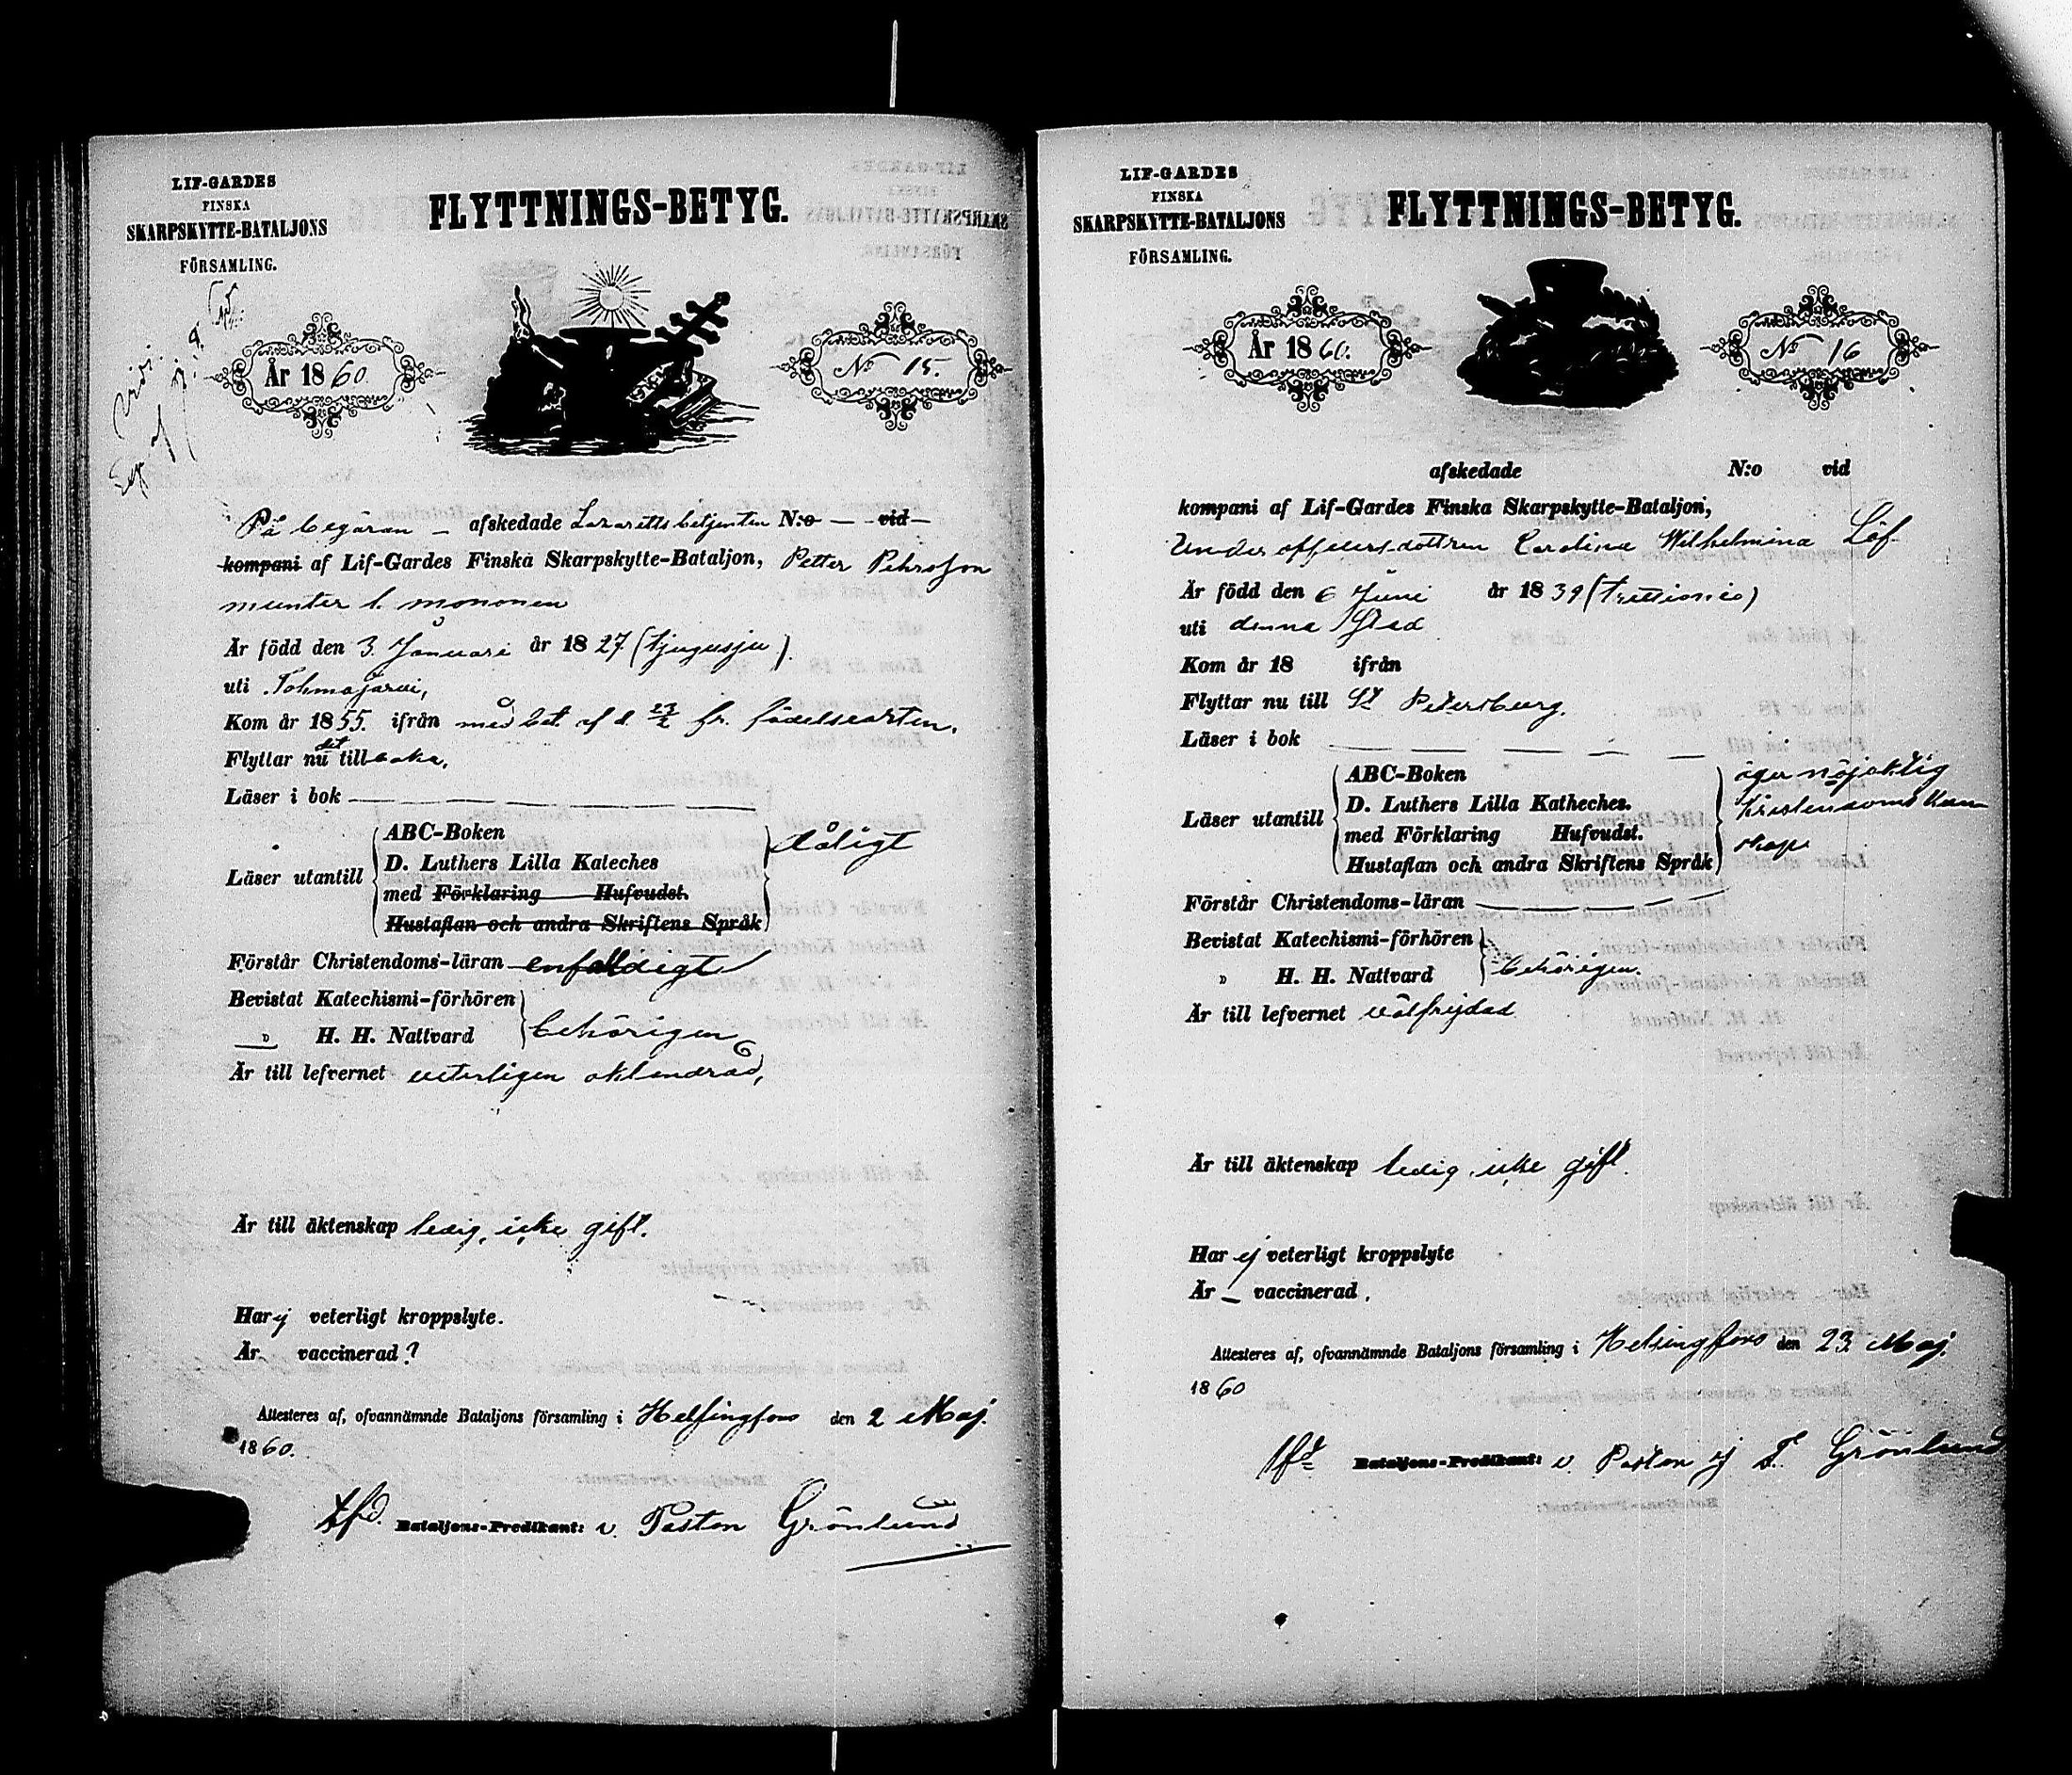 LIF-GARDES
FINSKA
SKARPSKYTTE-BATALJONS
FÖRSAMLING.
FLYTTNINGS-BETYG.
År 1860.
No 15.
På begäran – afskedade Lazarettsbetjenten N:o — vid —
kompani af Lif-Gardes Finska Skarpskytte-Bataljon, Petter Pehrsson
munter l. mononen
Är född den 3. Januari år 1827 (tjugusju).
uti Tohmajärvi,
Kom år 1855. ifrån med bet. af d. 23/2 fr. födelseorten.
Flyttar nu dit tillbaka,
Läser i bok — — — — —
Läser utantill
ABC-Boken
D. Luthers Lilla Kateches
med Förklaring Hufvudst.
Hustaflan och andra Skriftens Språk
dåligt
Förstår Christendoms-läran enfaldigt
Bevistat Katechismi-förhören
„ H. H. Nattvard
behörigen
Är till lefvernet veterligen oklandrad,
Är till äktenskap ledig, icke gift.
Har ej veterligt kroppslyte.
Är vaccinerad?
Attesteres af, ofvannämnde Bataljons församling i Helsingfors den 2 Maj.
1860.
tfd. Bataljons-Predikant: v. Pastor Grönlund
LIF-GARDES
FINSKA
SKARPSKYTTE-BATALJONS
FÖRSAMLING.
FLYTTNINGS-BETYG.
År 1860.
No 16
afskedade N:o vid
kompani af Lif-Gardes Finska Skarpskytte-Bataljon,
Underofficersdottren Carolina Wilhelmina Löf
Är född den 6 Juni år 1839 (trettionio)
uti denna Stad
Kom år 18 ifrån
Flyttar nu till St Petersburg.
Läser i bok — — — — —
Läser utantill
ABC-Boken
D. Luthers Lilla Katheches.
med Förklaring Hufvudst.
Hustaflan och andra Skriftens Språk
äger nöjaktig
kristendoms kun
skap
Förstår Christendoms-läran — — — —
Bevistat Katechismi-förhören
„ H. H. Nattvard
behörigen.
Är till lefvernet välfrejdad
Är till äktenskap ledig, icke gift.
Har ej veterligt kroppslyte
Är – vaccinerad.
Attesteres af, ofvannämnde Bataljons församling i Helsingfors den 23 Maj.
1860
tfd Bataljons-Predikant: v. Pastor Grönlund